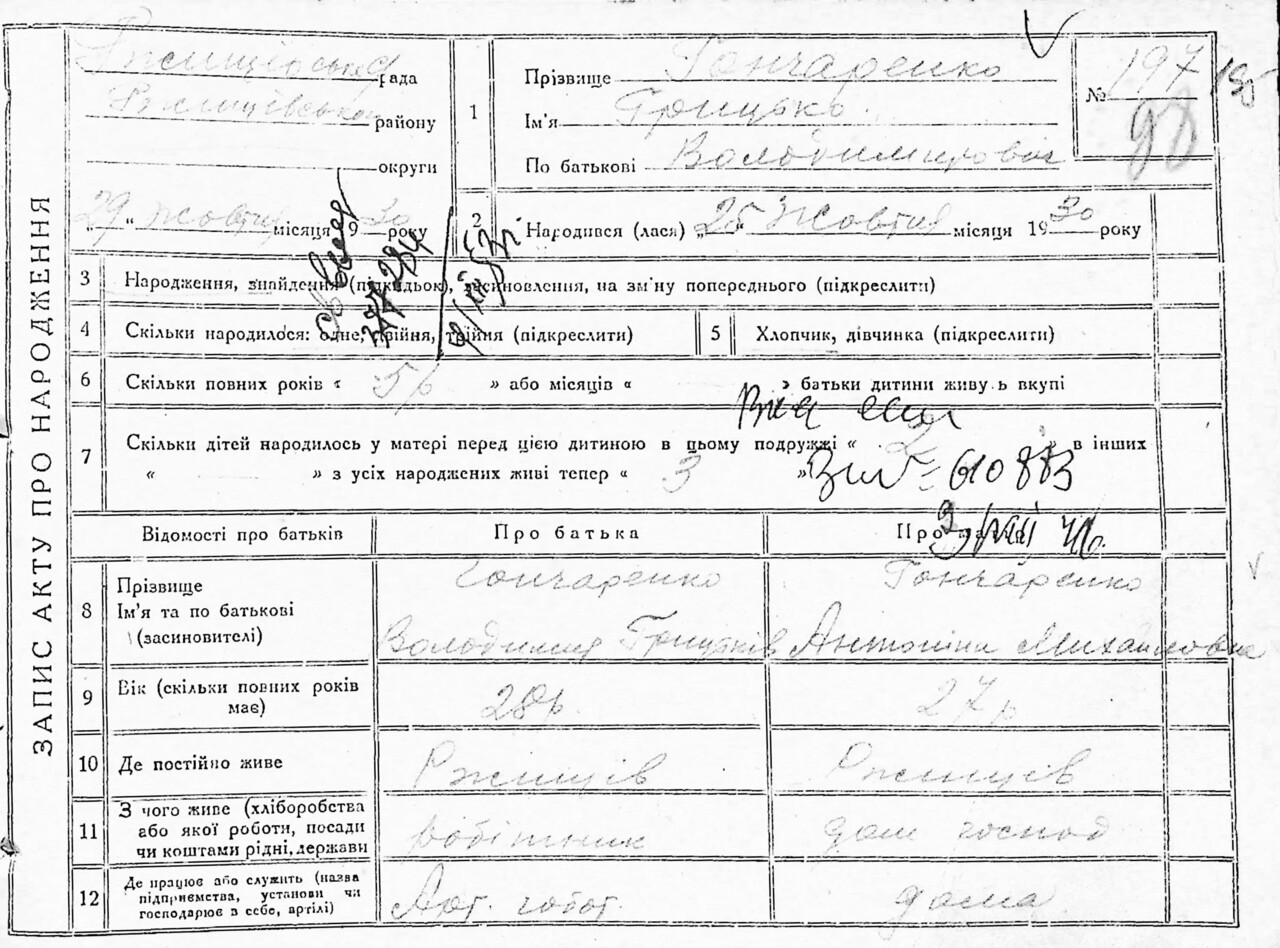 ЗАПИС АКТУ ПРО НАРОДЖЕННЯ
Ржищівська рада
Ржищівського району
округи
"29" Жовтня місяця 1930 року
1
Прізвище Гончаренко
Ім'я Грицько
По батькові Володимирович
№ 197
98
2
Народився (лася) "25" Жовтня місяця 1930 року
3
Народження, знайдення (підкидьок), усиновлення, на зм'ну попереднього (підкреслити)
4
Скільки народилося: одне, двійня, трійня (підкреслити)
5
Хлопчик, дівчинка (підкреслити)
6
Скільки повних років « 5 р » або місяців « » батьки дитини живуть вкупі
7
Скільки дітей народилось у матері перед цією дитиною в цьому подружжі « 2 » в інших
« » з усіх народжених живі тепер « 3 »
610883
Відомості про батьків
Про батька
Про
8
Прізвище
Ім'я та по батькові
(засиновителі)
Гончаренко
Володимир Грицьків
Гончаренко
Антоніна Михайловна
9
Вік (скільки повних років
має)
28 р.
27 р
10
Де постійно живе
Ржищів
Ржищів
11
З чого живе (хліборобства
або якої роботи, посади
чи коштами рідні, держави
робітник
дом господ
12
Де працює або служить (назва
підприємства, установи чи
господарює з себе, артілі)
Арт.
дома